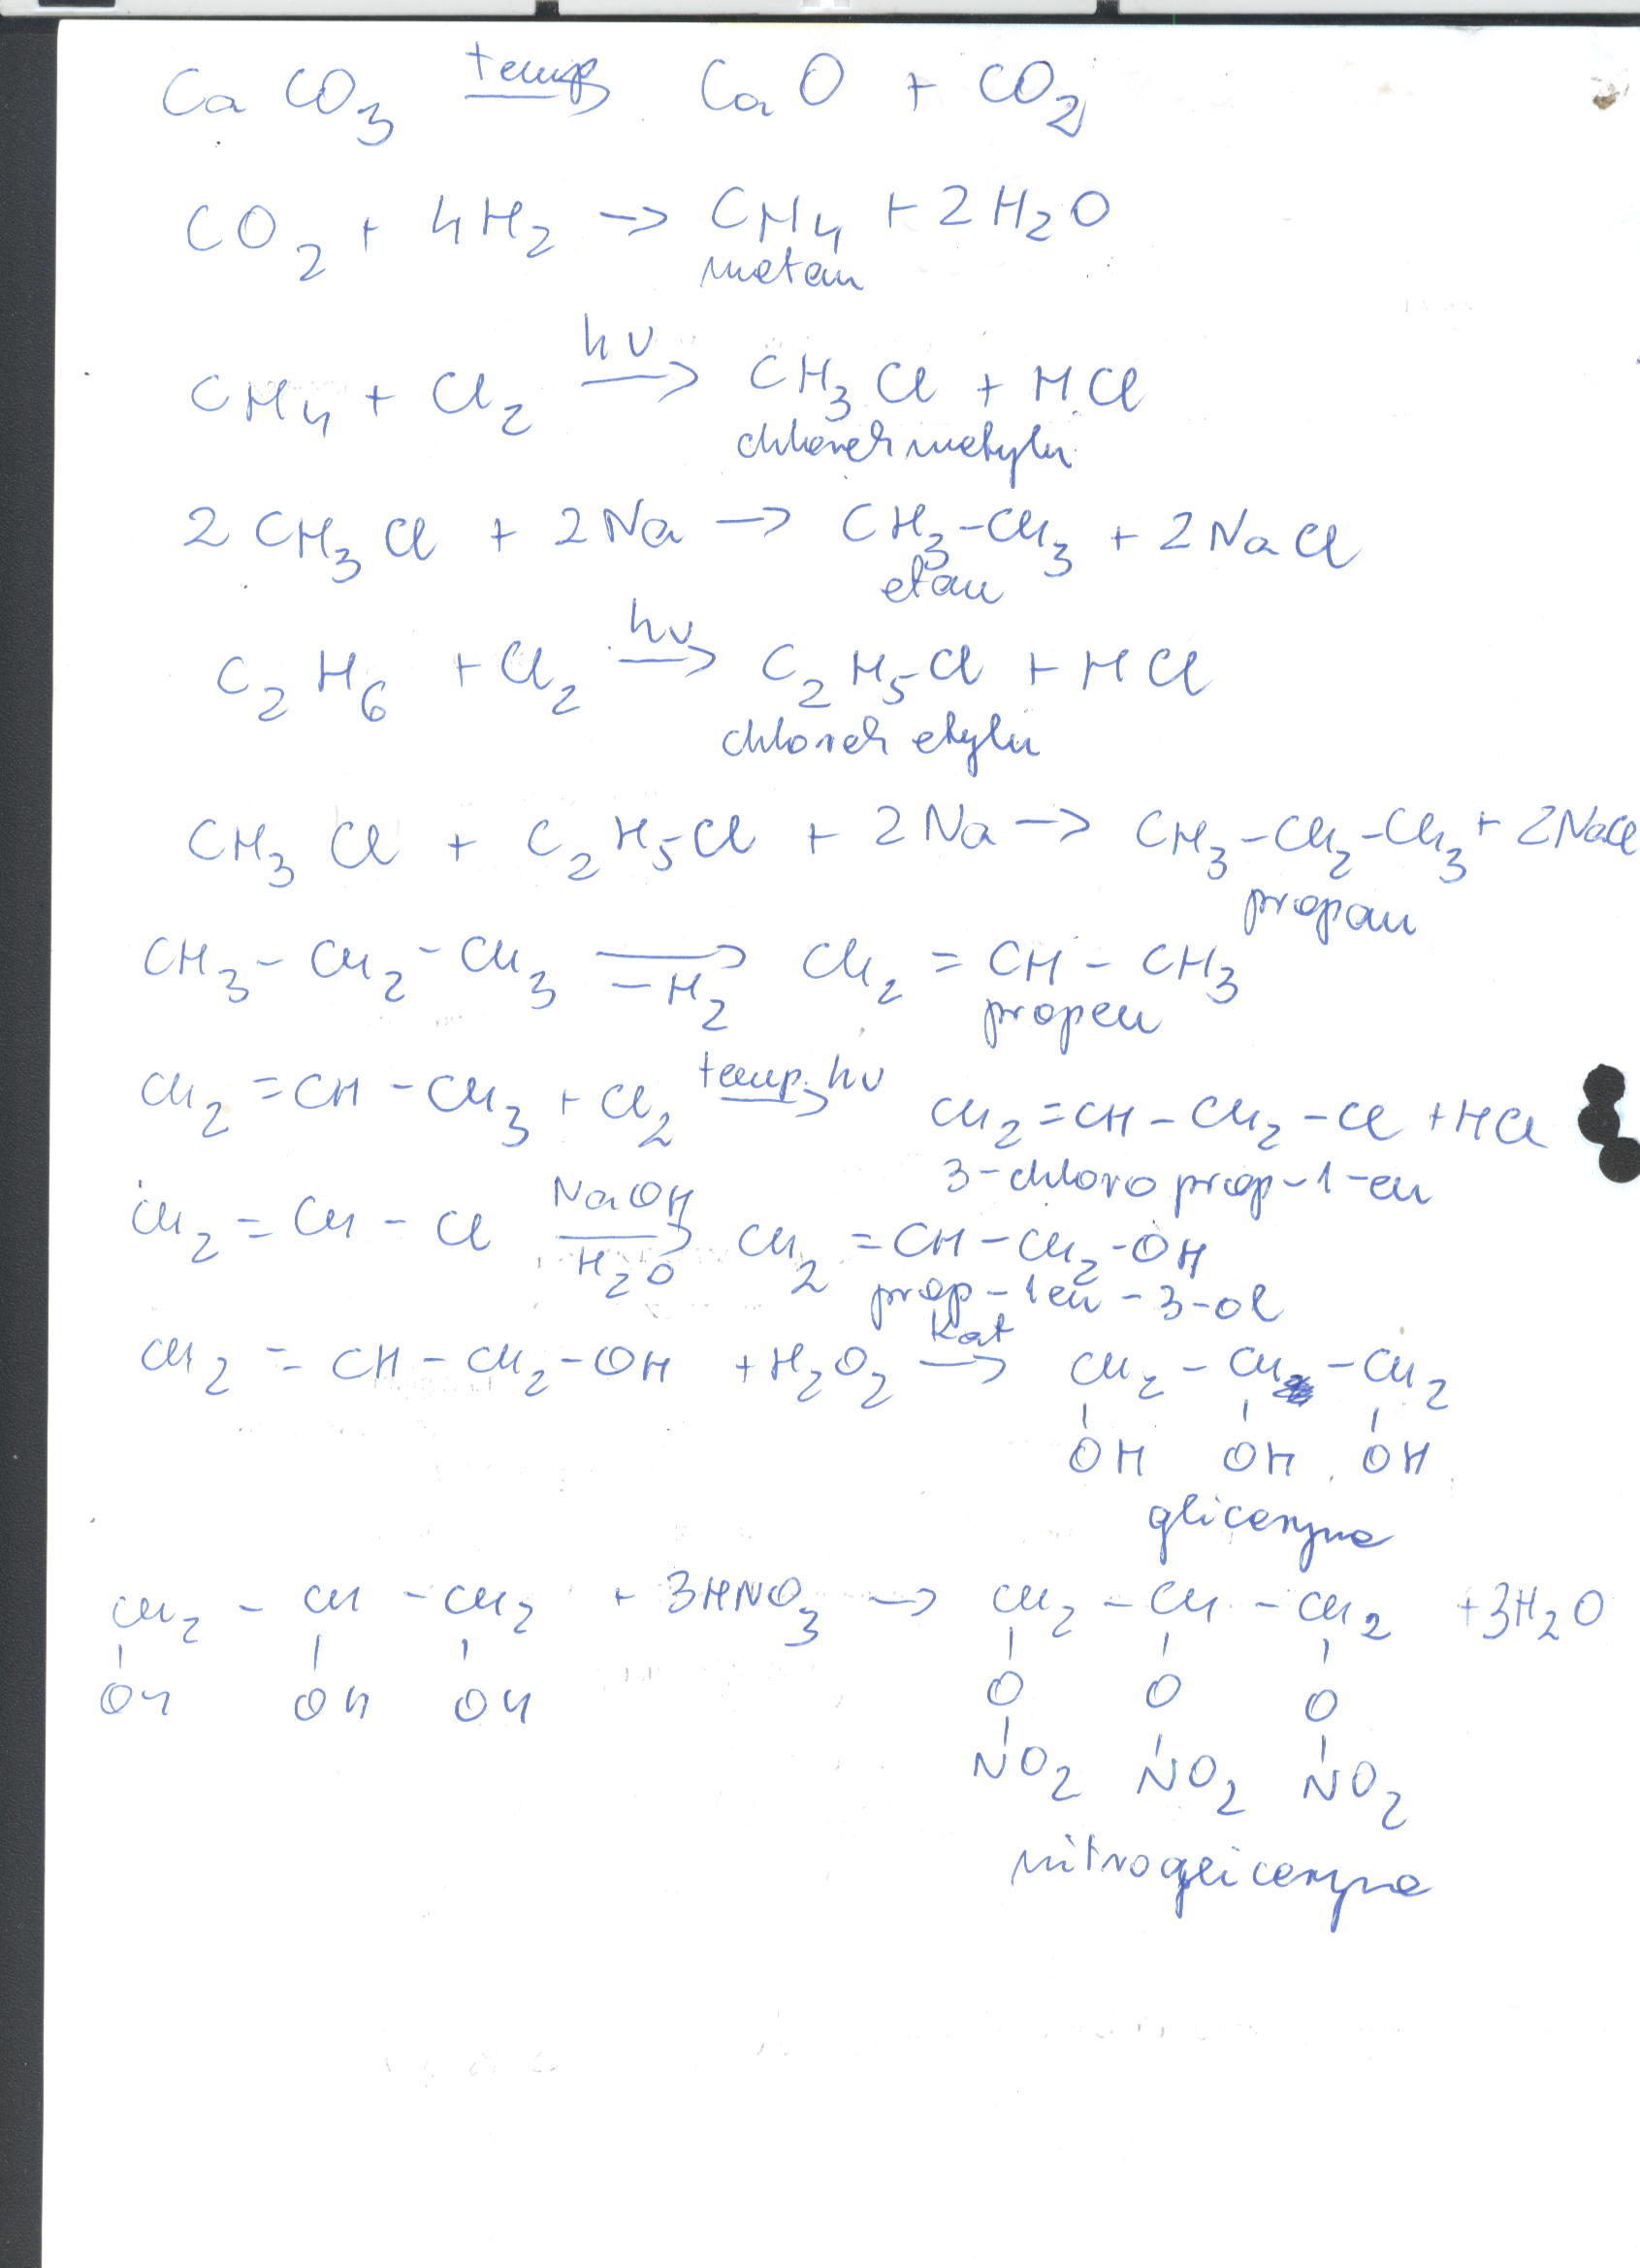 CaCO3 temp→ CaO + CO2
CO2 + 4H2 → CH4 + 2H2O
metan
CH4 + Cl2 hν→ CH3Cl + HCl
chlorek metylu
2CH3Cl + 2Na → CH3-CH3 + 2NaCl
etan
C2H6 + Cl2 hν→ C2H5Cl + HCl
chlorek etylu
CH3Cl + C2H5Cl + 2Na → CH3-CH2-CH3 + 2NaCl
propan
CH3-CH2-CH3 →-H2 CH2=CH-CH3
propen
CH2=CH-CH3 + Cl2 temp. hν→ CH2=CH-CH2-Cl + HCl
3-chloroprop-1-en
CH2=CH-Cl NaOH→H2O CH2=CH-CH2-OH
prop-1en-3-ol
CH2=CH-CH2-OH + H2O2 kat→ CH2-CH-CH2
OH OH OH
gliceryna
CH2-CH-CH2 + 3HNO3 → CH2-CH-CH2 + 3H2O
OH OH OH O O O
NO2 NO2 NO2
nitrogliceryna